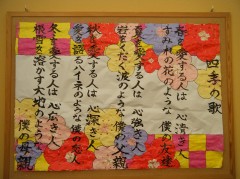 四季の歌
春を愛する人は 心清き人
すみれの花のような 僕の友達
夏を愛する人は 心強き人
岩をくだく波のような 僕の父親
秋を愛する人は 心深き人
愛を語るハイネのような 僕の恋人
冬を愛する人は 心広き人
根雪を溶かす大地のような 僕の母親